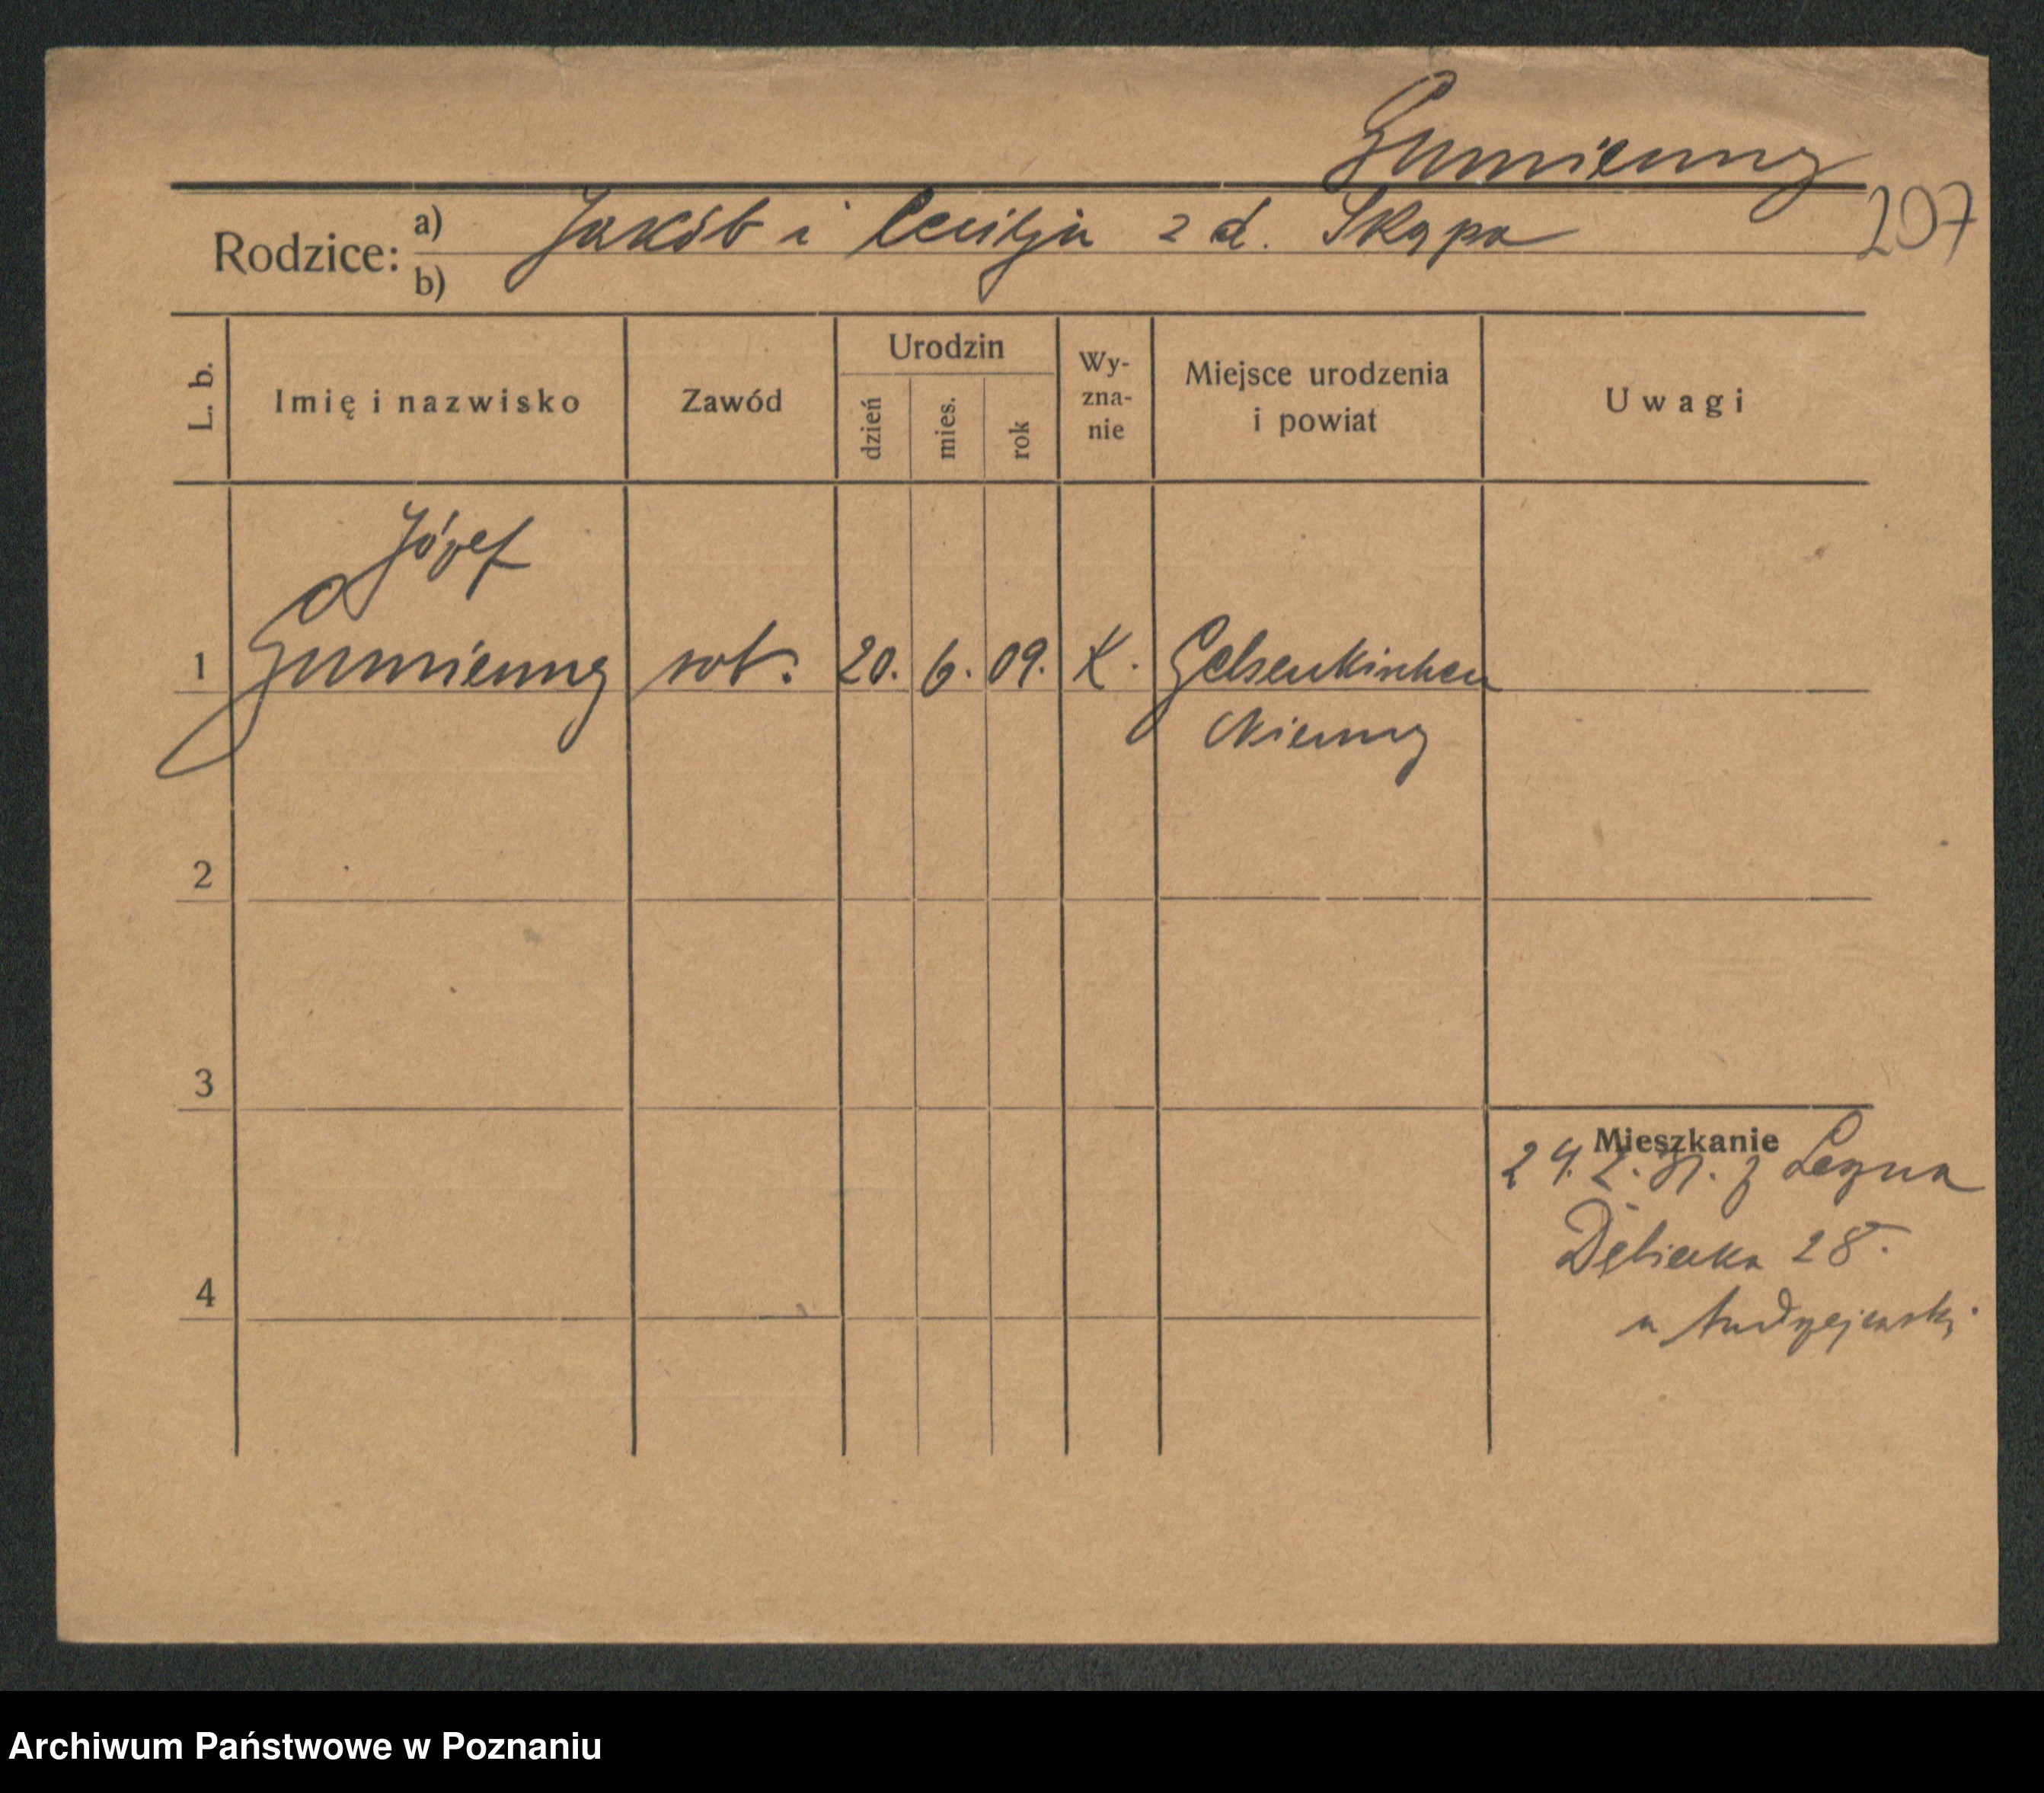 Gumienny
207
Rodzice: a) Jakób i Cecilja z d. Skąpa
b)
L. b. Imię i nazwisko Zawód Urodzin dzień mies. rok Wy-zna-nie Miejsce urodzenia i powiat Uwagi
Józef
1 Gumienny rob. 20. 6. 09. K. Gelsenkirchen
Niemcy
2
3
Mieszkanie
24. 2. 31. z
Dębiecka 28.
u Andrzejewski
4
Archiwum Państwowe w Poznaniu